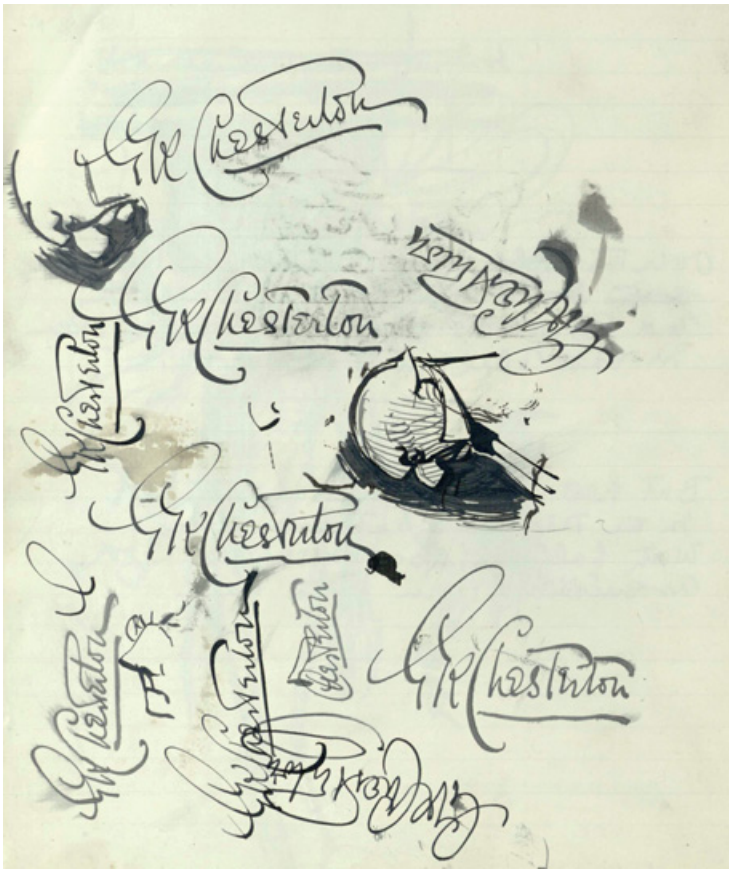 GK Chesterton
GK Chesterton
GK Chesterton
GK Chesterton
GK Chesterton
GK Chesterton
GK Chesterton
Chesterton
GK Chesterton
GK Chesterton
GK Chesterton